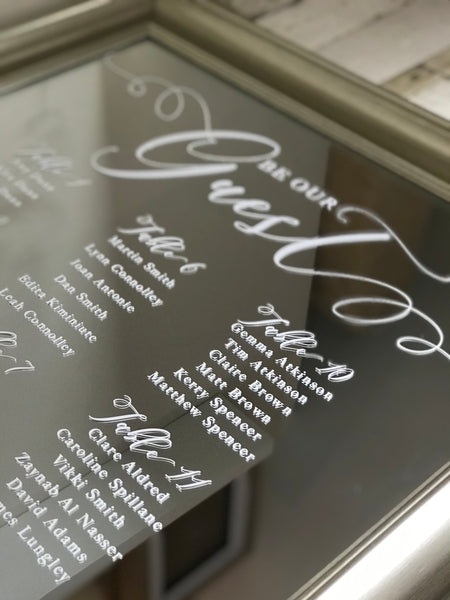 BE OUR
Guest
Table 6
Martin Smith
Lynn Connolley
Joan Antonie
Dan Smith
Edita Kiminiute
Leah Connolley
Table 10
Gemma Atkinson
Tim Atkinson
Claire Brown
Matt Brown
Kerry Spencer
Matthew Spencer
Table 11
Clare Aldred
Caroline Spillane
Vikki Smith
Zaynab Al Nasser
David Adams
Lungley